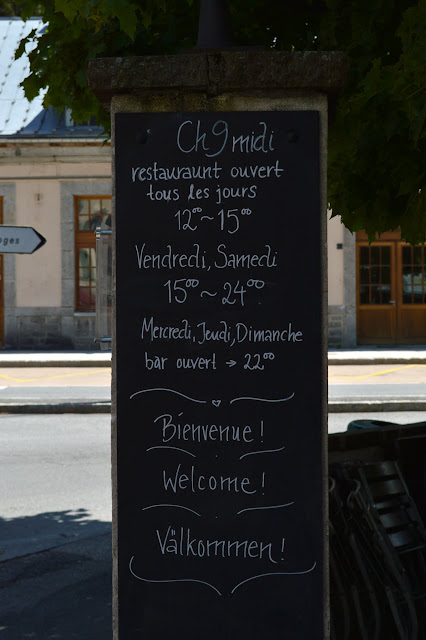 Ch9midi
restauraunt ouvert
tous les jours
12⁰⁰~15⁰⁰
Vendredi, Samedi
15⁰⁰~24⁰⁰
Mercredi, Jeudi, Dimanche
bar ouvert → 22⁰⁰
Bienvenue!
Welcome!
Välkommen!